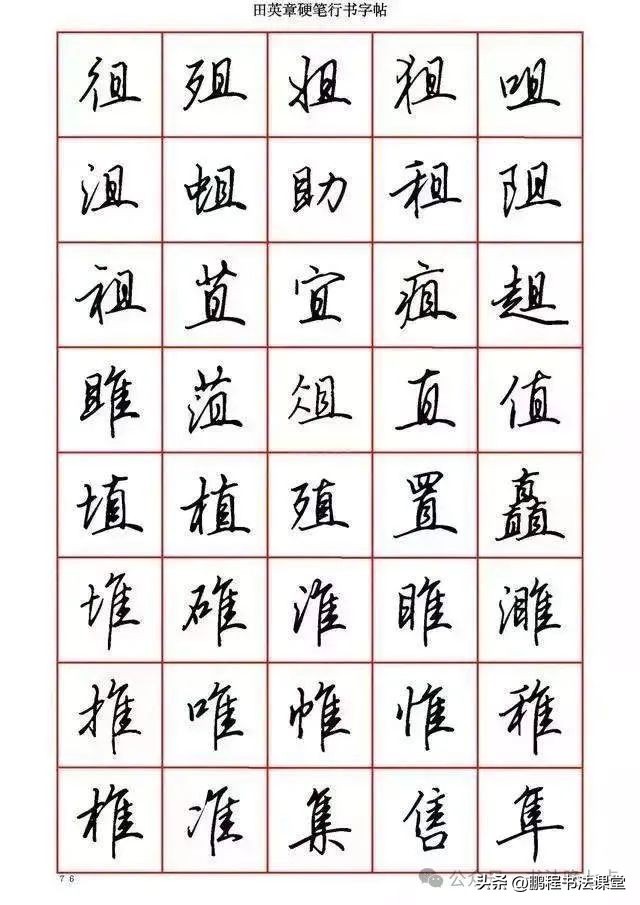 田英章硬笔行书字帖
徂 殂 姐 狙 咀
沮 蛆 助 租 阻
祖 苴 宜 疽 趄
雎 菹 俎 直 值
埴 植 殖 置 矗
堆 碓 淮 睢 濉
推 唯 帷 惟 稚
椎 准 集 售 隼
76
头条 @鹏程书法课堂